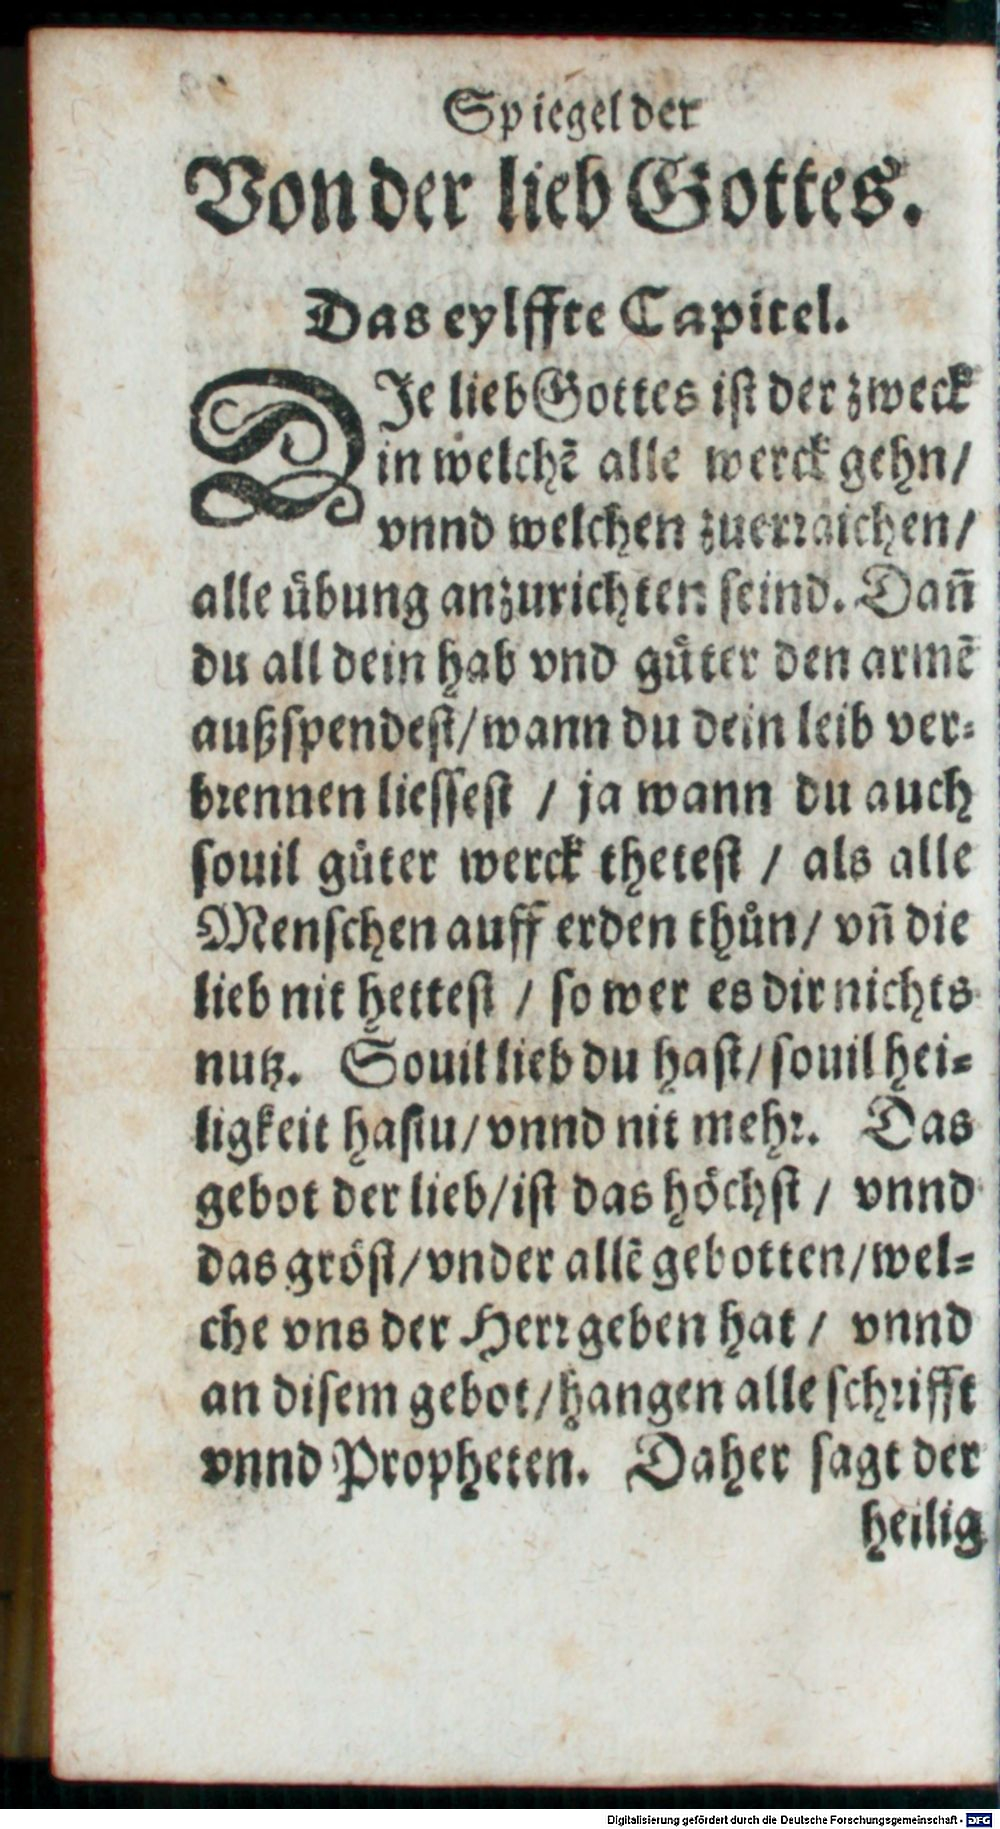 Spiegel der
Von der lieb Gottes.
Das eylffte Capitel.
DJe lieb Gottes ist der zweck
in welchē alle werck gehn/
vnnd welchen zuerraichen/
alle übung anzurichten seind. Dañ
du all dein hab vnd gu̎ter den armē
außspendest/wann du dein leib ver-
brennen liessest / ja wann du auch
souil gu̎ter werck thetest / als alle
Menschen auff erden thůn/ vñ die
lieb nit hettest / so wer es dir nichts
nutz. Souil lieb du hast/souil hei-
ligkeit hastu/vnnd nit mehr. Das
gebot der lieb/ist das höchst / vnnd
das gröst/vnder allē gebotten/wel-
che vns der Herr geben hat / vnnd
an disem gebot/hangen alle schrifft
vnnd Propheten. Daher sagt der
heilig
Digitalisierung gefördert durch die Deutsche Forschungsgemeinschaft - DFG